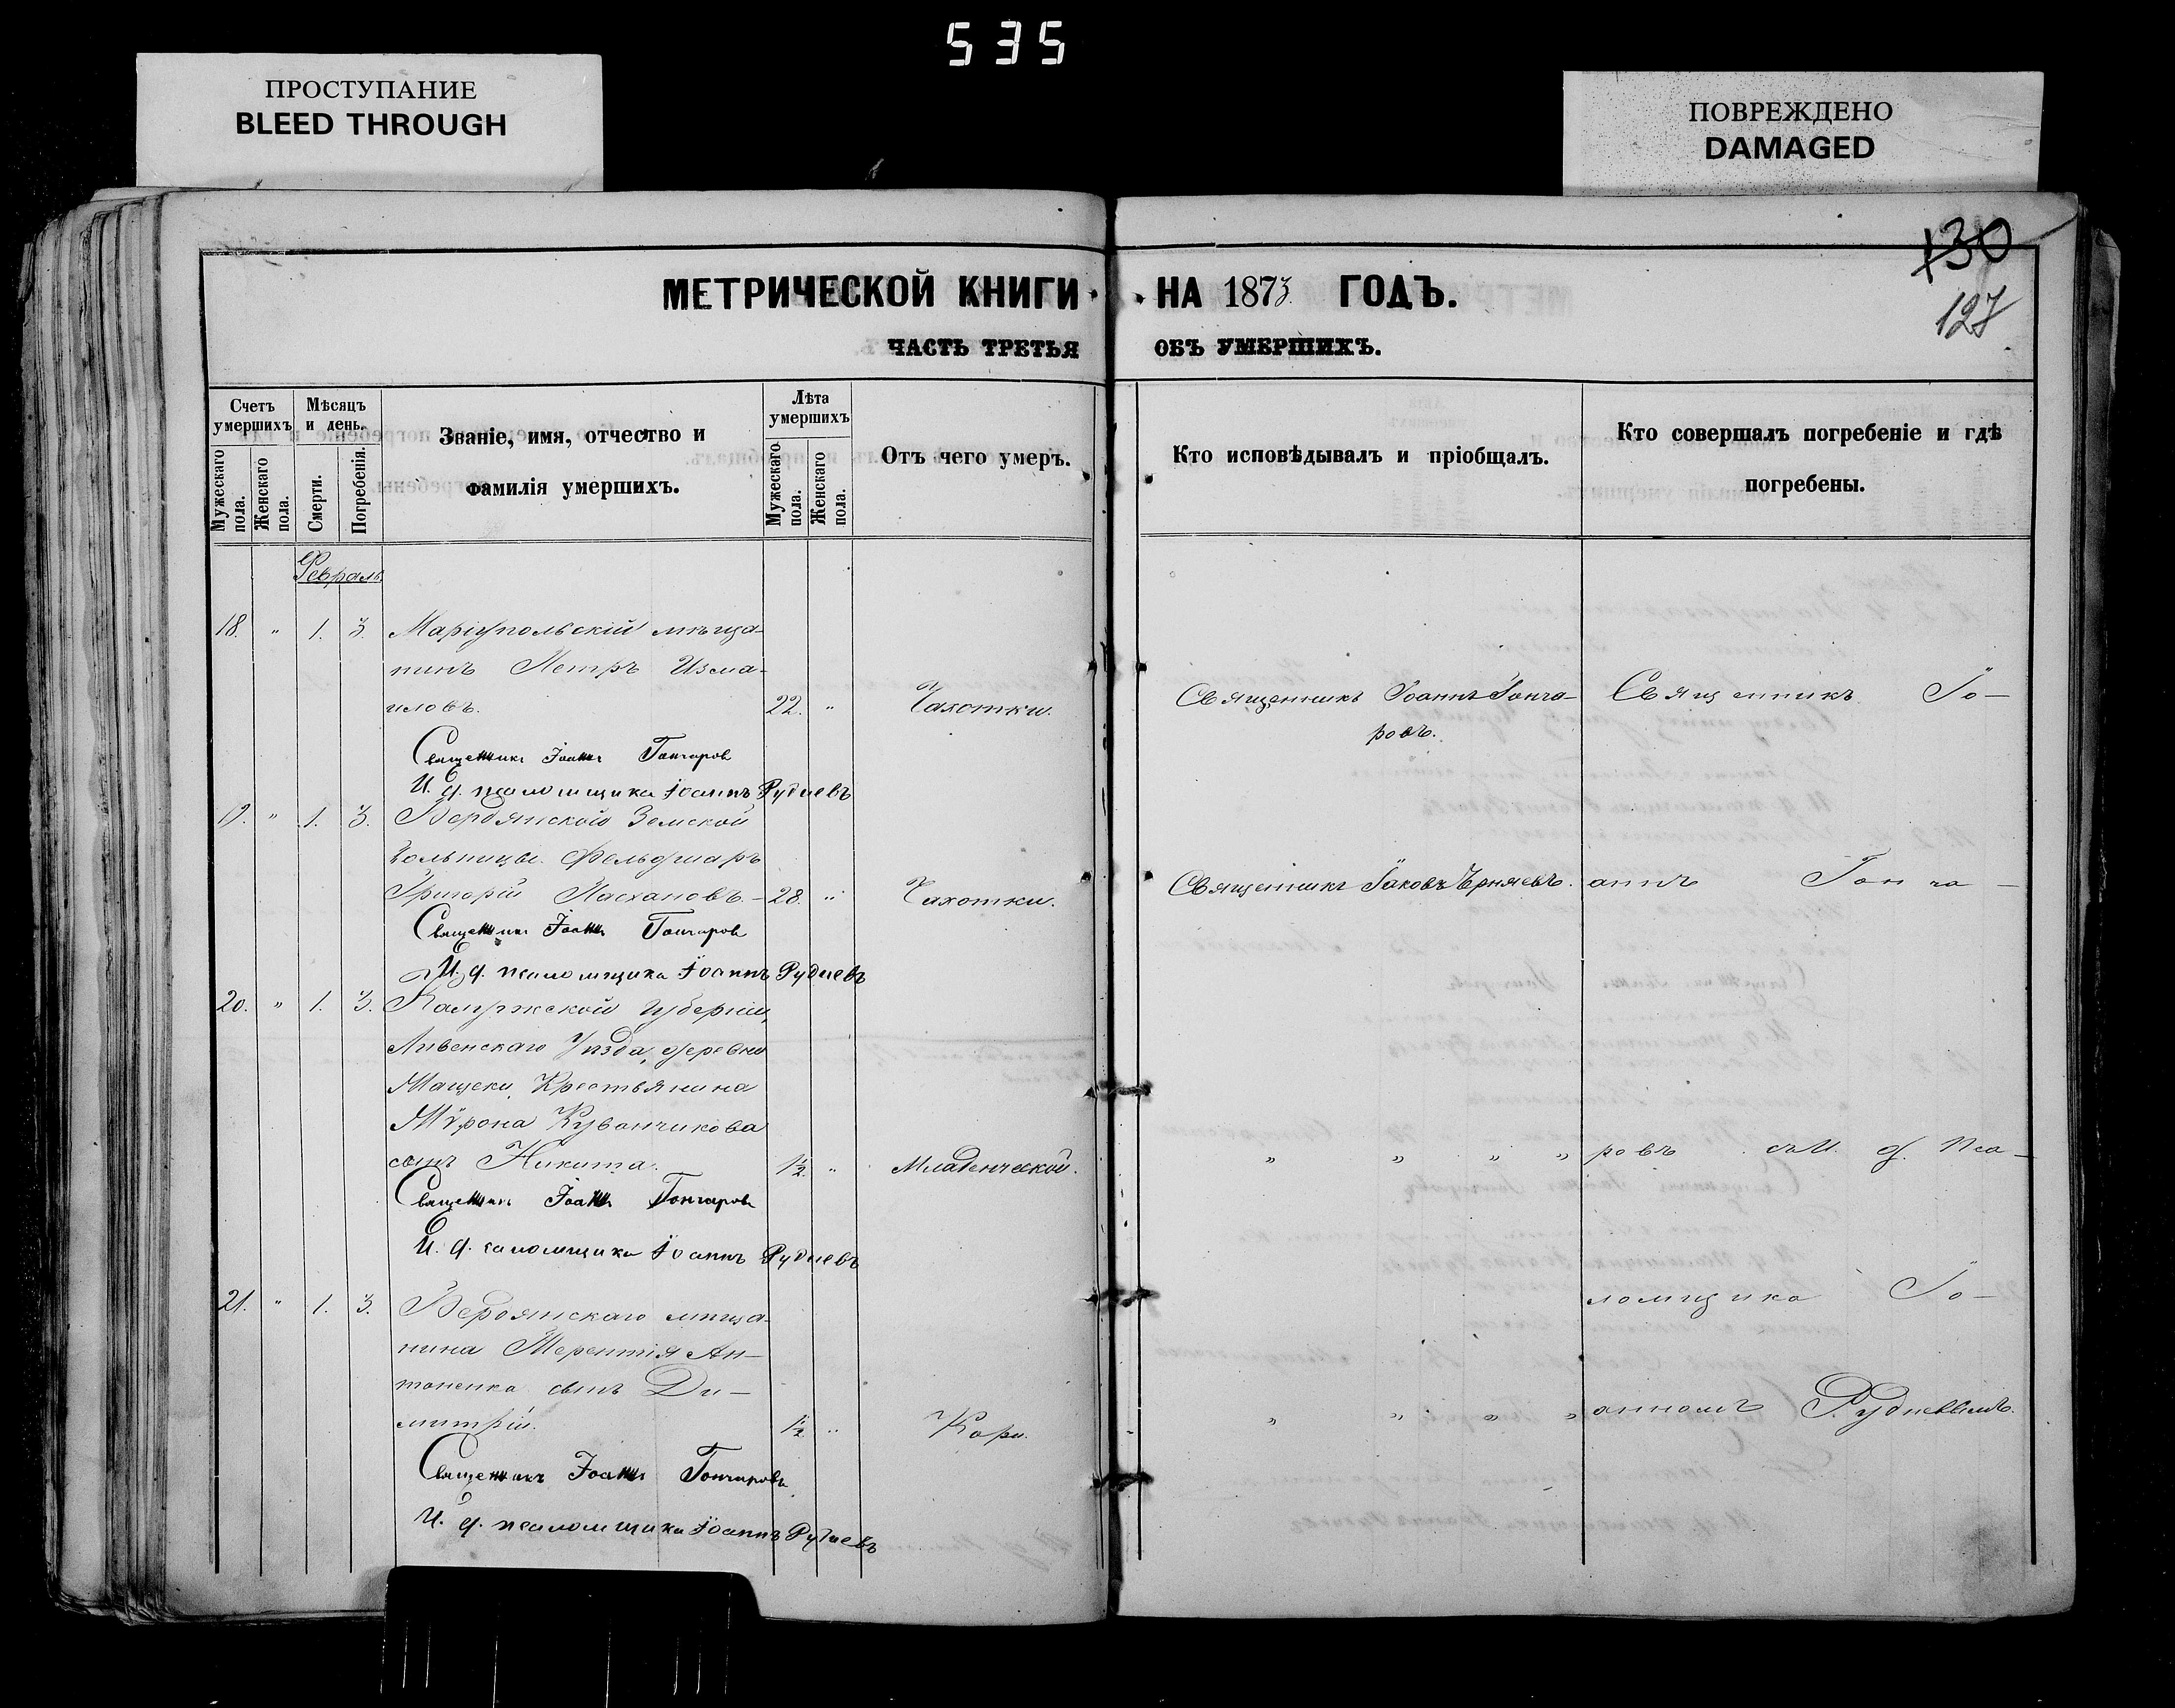 535
ПРОСТУПАНИЕ
BLEED THROUGH
ПОВРЕЖДЕНО
DAMAGED
130
127
МЕТРИЧЕСКОЙ КНИГИ НА 1873 ГОДЪ.
ЧАСТЬ ТРЕТЬЯ ОБЪ УМЕРШИХЪ.
Счетъ умершихъ
Мужескаго пола.
Женскаго пола.
Мѣсяцъ и день.
Смерти.
Погребенія.
Званіе, имя, отчество и
фамилія умершихъ.
Лѣта умершихъ
Мужескаго пола.
Женскаго пола.
Отъ чего умеръ.
Кто исповѣдывалъ и пріобщалъ.
Кто совершалъ погребеніе и гдѣ
погребены.
Февраль
18. " 1. 3. Маріупольскій мѣща-
нинъ Петръ Изма-
иловъ. 22. " Чахотки. Священникъ Іоаннъ Гонча- Священникъ Іо-
ровъ.
Священникъ Іоаннъ Гончаровъ
И. д. псаломщика Іоаннъ Рудневъ
19. " 1. 3. Бердянской Земской
больницы фельдшаръ
Григорій Пасхановъ. - 28. " Чахотки. Священникъ Іаковъ Чернявъ. аннъ Гонча-
Священникъ Іоаннъ Гончаровъ
И. д. псаломщика Іоаннъ Рудневъ
20. " 1. 3. Калужской губерніи,
Ливенскаго Уѣзда, деревни
Мащеки, Крестьянина
Мѵрона Куванчикова
сынъ Никита. 1½ " Младенческой. " " " " ровъ съ И. д. Пса-
Священникъ Іоаннъ Гончаровъ
И. д. саломщика Іоаннъ Рудневъ
21. " 1. 3. Бердянскаго мѣща- ломщика Іо-
нина Терентія Ан-
тоненка сынъ Ди-
митрій. 1½ " Кори. " " " " анномъ Рудневымъ.
Священникъ Іоаннъ Гончаровъ
И. д. псаломщика Іоаннъ Рудневъ